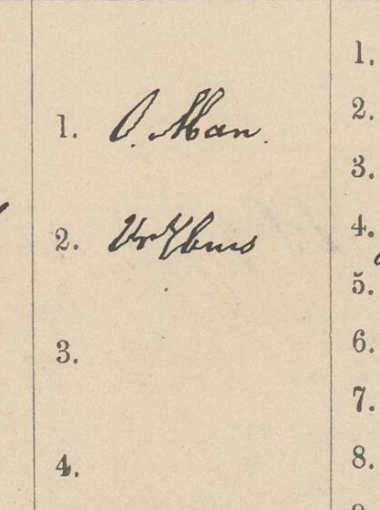 1. O. Man.
2.
3.
4.
1.
2.
3.
4.
5.
6.
7.
8.